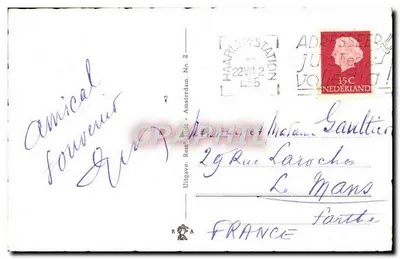 Amical
Souvenir
Uitgave: Rem
Amsterdam No. 2
HAARLEM-STATION
22.VII.12
1955
ADRESSEER
JUIST
VOLLEDIG!
15 C
NEDERLAND
Monsieur et Madame Gaultier
29 Rue Laroches
Le Mans
Sarthe
FRANCE
R A